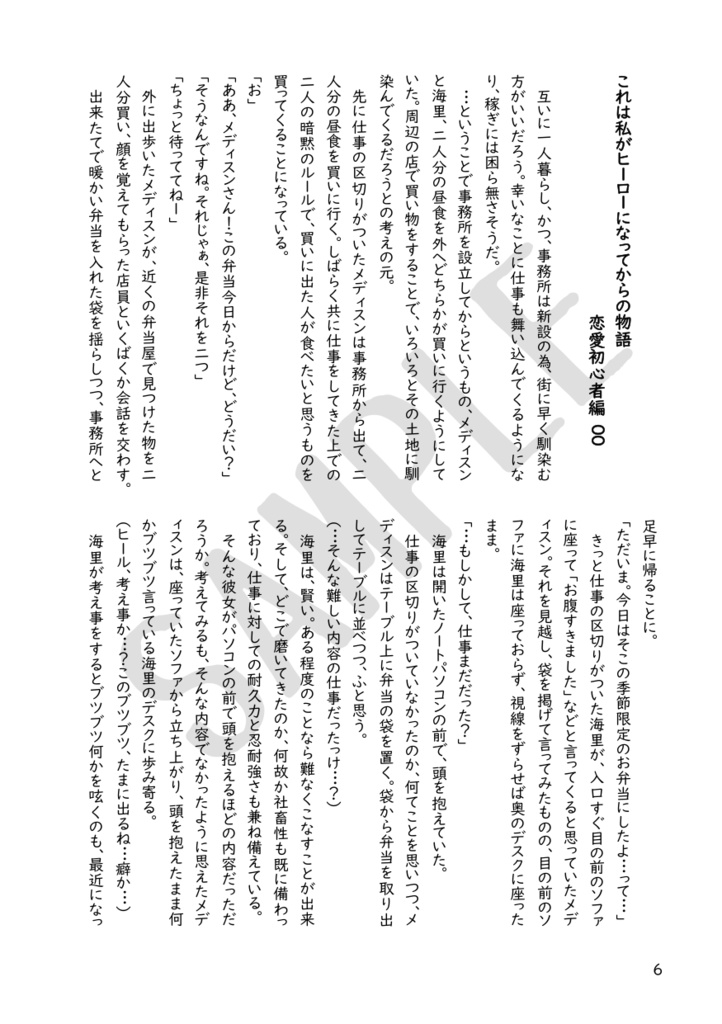 これは私がヒーローになってからの物語
恋愛初心者編 00
互いに一人暮らし、かつ、事務所は新設の為、街に早く馴染む
方がいいだろう。幸いなことに仕事も舞い込んでくるようにな
り、稼ぎには困ら無さそうだ。
…ということで事務所を設立してからというもの、メディスン
と海里、二人分の昼食を外へどちらかが買いに行くようにして
いた。周辺の店で買い物をすることで、いろいろとその土地に馴
染んでくるだろうとの考えの元。
先に仕事の区切りがついたメディスンは事務所から出て、二
人分の昼食を買いに行く。しばらく共に仕事をしてきた上での
二人の暗黙のルールで、買いに出た人が食べたいと思うものを
買ってくることになっている。
「お」
「ああ、メディスンさん！この弁当今日からだけど、どうだい？」
「そうなんですね。それじゃぁ、是非それを二つ」
「ちょっと待っててねー」
外に出歩いたメディスンが、近くの弁当屋で見つけた物を二
人分買い、顔を覚えてもらった店員といくばくか会話を交わす。
出来たてで暖かい弁当を入れた袋を揺らしつつ、事務所へと
足早に帰ることに。
「ただいま。今日はそこの季節限定のお弁当にしたよ…って…」
きっと仕事の区切りがついた海里が、入口すぐ目の前のソファ
に座って「お腹すきました」などと言ってくると思っていたメデ
ィスン。それを見越し、袋を掲げて言ってみたものの、目の前のソ
ファに海里は座っておらず、視線をずらせば奥のデスクに座った
まま。
「…もしかして、仕事まだだった？」
海里は開いたノートパソコンの前で、頭を抱えていた。
仕事の区切りがついていなかったのか、何てことを思いつつ、メ
ディスンはテーブル上に弁当の袋を置く。袋から弁当を取り出
してテーブルに並べつつ、ふと思う。
（…そんな難しい内容の仕事だったっけ…？）
海里は、賢い。ある程度のことなら難なくこなすことが出来
る。そして、どこで磨いてきたのか、何故か社畜性も既に備わっ
ており、仕事に対しての耐久力と忍耐強さも兼ね備えている。
そんな彼女がパソコンの前で頭を抱えるほどの内容だっただ
ろうか。考えてみるも、そんな内容でなかったように思えたメデ
ィスンは、座っていたソファから立ち上がり、頭を抱えたまま何
かブツブツ言っている海里のデスクに歩み寄る。
（ヒール、考え事か…？このブツブツ、たまに出るね…癖か…）
海里が考え事をするとブツブツ何かを呟くのも、最近になっ
6
SAMPLE